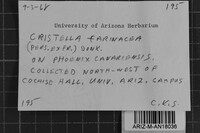 9-3-68 195
University of Arizona Herbarium
CRISTELLA FARINACEA
(PERS. EX FR.) DONK.
ON PHOENIX CANARIENSIS.
COLLECTED NORTH-WEST OF
COCHISE HALL, UNIV. ARIZ. CAMPUS
195 C.K.S.
ARIZ-M-AN18036